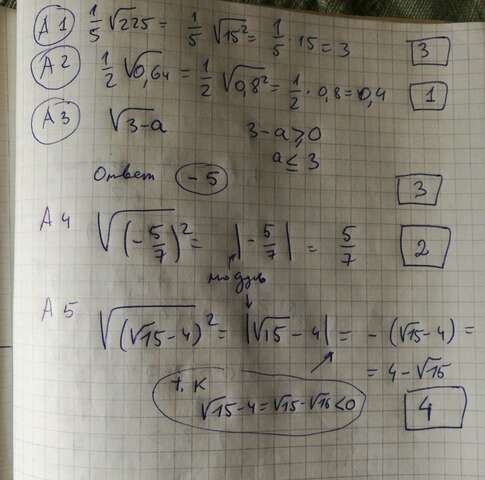 A1 1/5 √225 = 1/5 √15² = 1/5 · 15 = 3 3
A2 1/2 √0,64 = 1/2 √0,8² = 1/2 · 0,8 = 0,4 1
A3 √3-a 3-a ≥ 0
a ≤ 3
Ответ -5 3
A4 √(-5/7)² = |-5/7| = 5/7 2
модуль
A5 √(√15-4)² = |√15-4| = -(√15-4) =
= 4-√15
т.к
√15-4=√15-√16<0 4